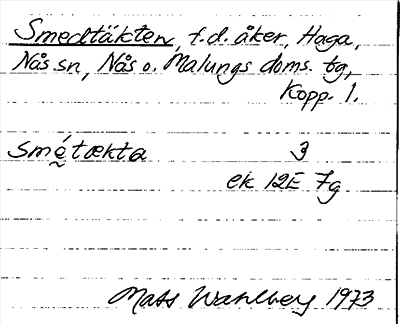 Smedtäkten, f.d. åker, Haga,
Nås sn, Nås o. Malungs doms. tg,
Kopp. l.
smḛ́tækta 3
ek 12E 7g
Mats Wahlberg 1973